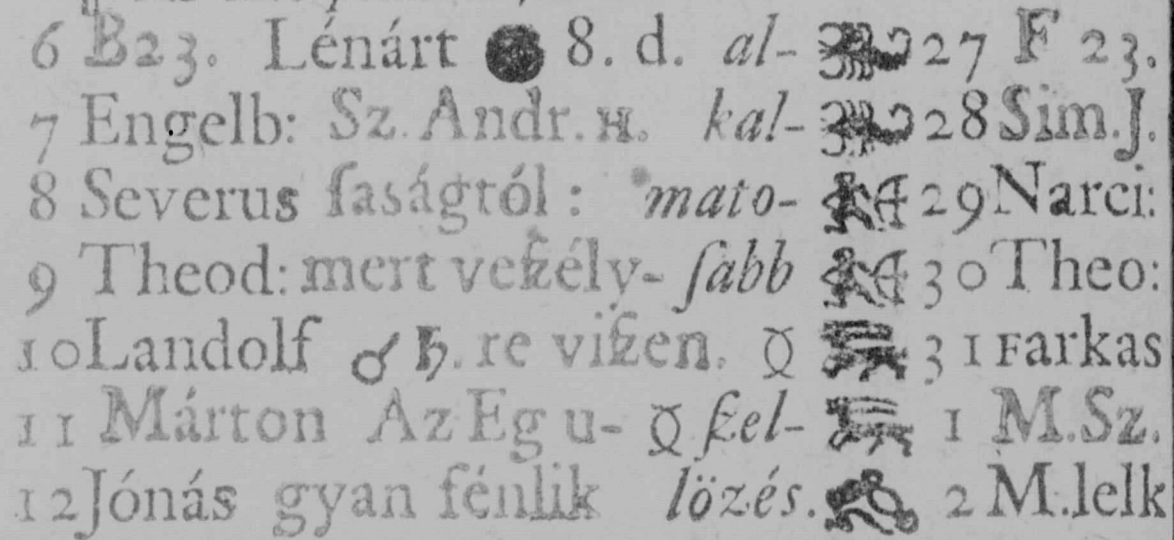 6 B 23. Lénárt ● 8. d. al- ♏ 27 F 23.
7 Engelb: Sz. Andr. H. kal- ♏ 28 Sim. J.
8 Severus ſaságtól : mato- ♐ 29 Narci:
9 Theod: mert veſzély- ſabb ♐ 30 Theo:
10 Landolf ☌ ♄. re viſzen. ☿ ♑ 31 Farkas
11 Márton Az Eg u- ☿ ſzel- ♑ 1 M. Sz.
12 Jónás gyan fénlik lözés. ♒ 2 M. lelk